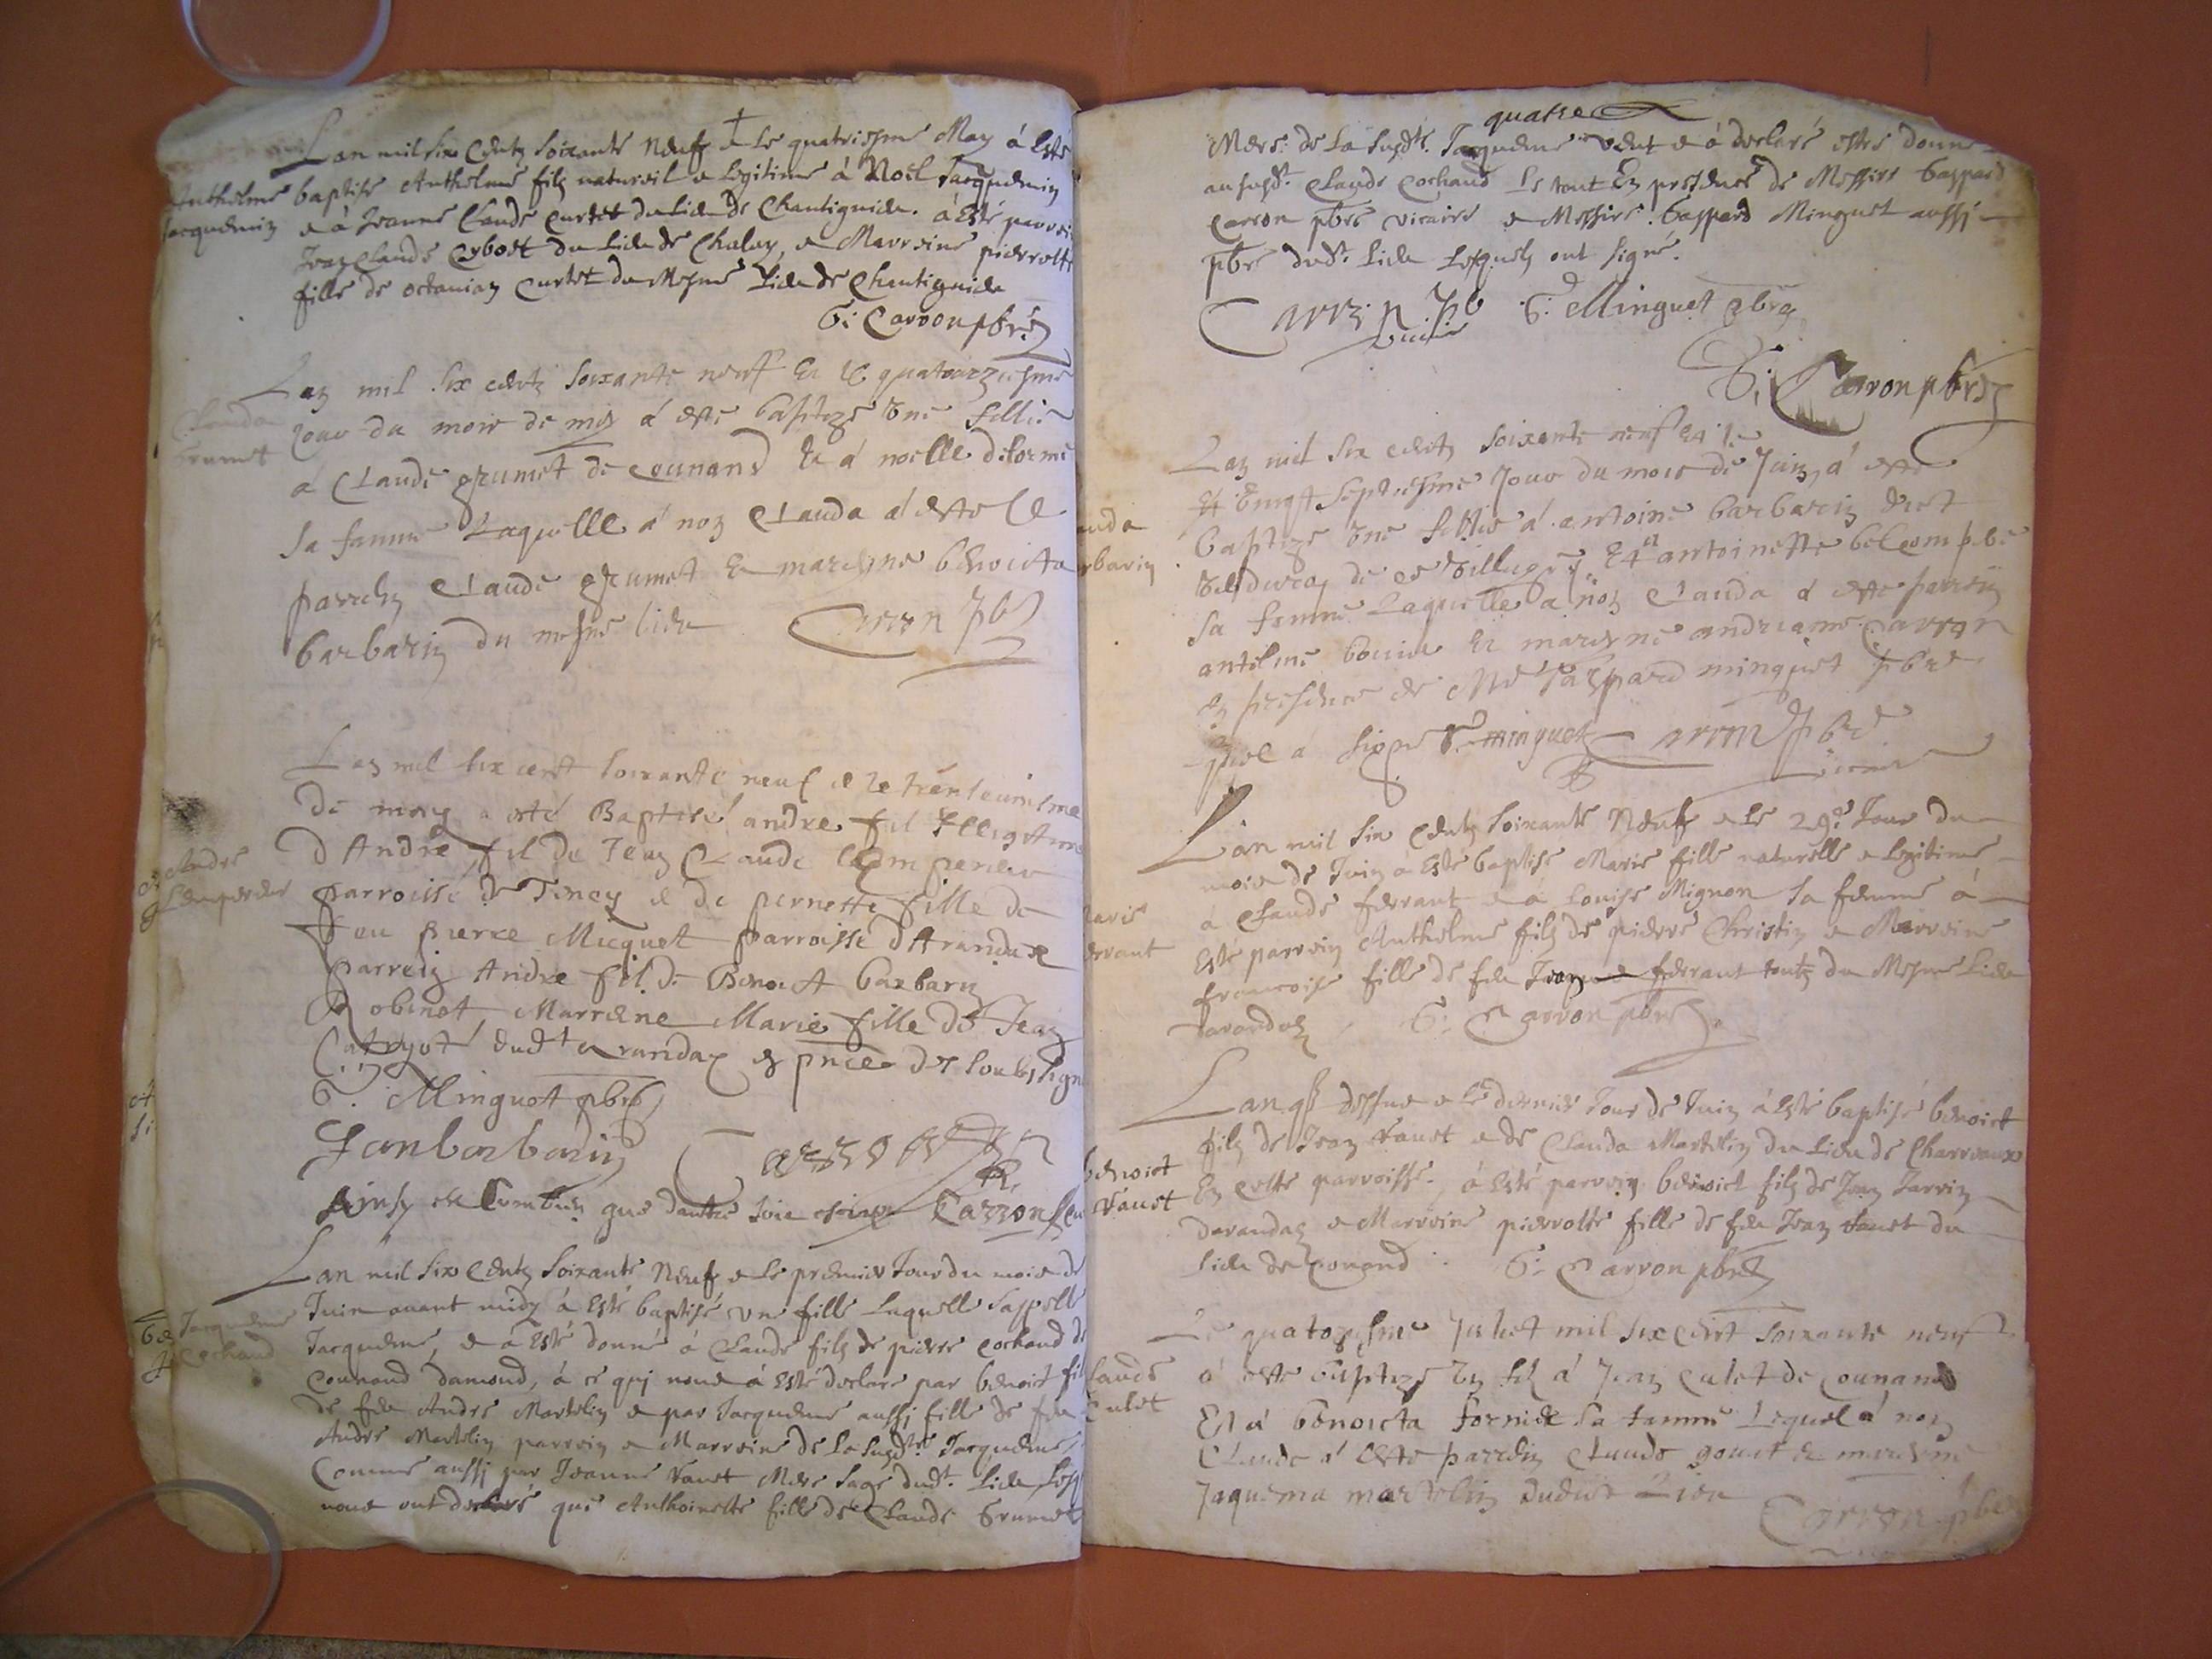 Lan mil six centz soixante Neufz & le quatriesme May à Esté
Anthelme baptisé Anthelme filz natureil & legitime à Noel Jacquemin
Jacquemin & à Jeanne Claude Curtet du lieu de Chantiguieu. à Esté parrein
Jean Claude Cyboet du lieu de Chaley, & Marreine pierrette
fille de octavian Curtet du Mesme lieu de Chantiguieu
G: Carron pbre
Lan mil six centz soixante neuf Et le quatourziesme
Clauda jour du mois de may a este baptize une fillie
Grumet a Claude grumet de Counand Et a noelle
sa famme Laquelle a non Clauda a este le
parrein Claude grumet Et mareine benoicta
barbarin du mesme lieu Carron pbre
Lan mil six cent soixante neuf & le trenteunisme
de may a esté Baptisé andre fil Illegitime
André d André fil de Jean Claude Lempereur
Lempereur parroisse de Tenay & de pernette fille de
feu pierre Micquet parroisse d Arandax
parrein Andre fil de Benoict barbarin
Robinet Marreine Marie fille de Jean
dudt arandax es pnce des soubsigne
G. Minguet pbre
Janbarbarin Carron
Ainsy est Combien que dautre soie Carron
Lan mil six centz soixante Neufz & le premier Jour du mois de
Juin avant midy à Esté baptisé une fille laquelle sappelle
Jacqueme Jacqueme, & à Esté donné à Claude filz de pierre cochand de
Cochand Counand damond, à ce qui nous à Esté declare par benoict filz
de feu André Martelin & par Jacqueme aussi fille de feu
André Martelin parrein & Marreine de la susdte Jacqueme,
Comme aussi par Jeanne Vauet Mere sage dudt. lieu lesq
nous ont declaré que Anthoinette fille de Claude Grumet
quatre
Mere. de la susdte. Jacqueme veut & à declaré estre donne
au susdt. Claude Cochand Le tout En presence de Messire Gaspard
Carron pbre vicaire & Messire Gaspard Minguet aussi
pbre dudt. lieu Lesquelz ont signé.
Carron pb vicaire G: Minguet pbre
G: Carron pbre
Lan mil six centz soixante neuf Et le
Et vingt septiesme jour du mois de Juin, a este
Clauda baptize une fillie a antoine barbarin
barbarin de ce villaige Et a antoinette
sa femme Laquelle a non Clauda a este parrein
antelme Et mareine andreame Carron
En presence de Me Gaspard minguet pbre
que a signe G. minguet Carron pbre
vicaire
Lan mil six centz soixante Neufz & le 29e Jour du
mois de Juin à Esté baptisé Marie fille naturelle & legitime
Marie à Claude ferrant & a Louise Mignon sa femme à
ferrant Esté parrein Anthelme filz de pierre Christin & Marreine
francoise fille de feu Jean ferrant toutz du Mesme lieu
darandaz G: Carron pbre
Lan qs dessus & le dernier Jour de Juin à Esté baptisé benoict
filz de Jean Vauet & de Clauda Martelin du lieu de Charveaux
benoict En cette parroisse. à Esté parrein benoict filz de Jean Jarrin
Vauet darandaz & Marreine pierrette fille de feu Jean Vauet du
lieu de Conand G: Carron pbre
Le quatorzsme Juliet mil six cent soixante neuf
Claude a este baptize un filz a Jean Culet de Counand
Culet Et a benoicta fornier sa famme Lequel a non
Claude a Este parrein Claude gouet & mareine
Jaquema martelin dudict Lieu
Carron pbre